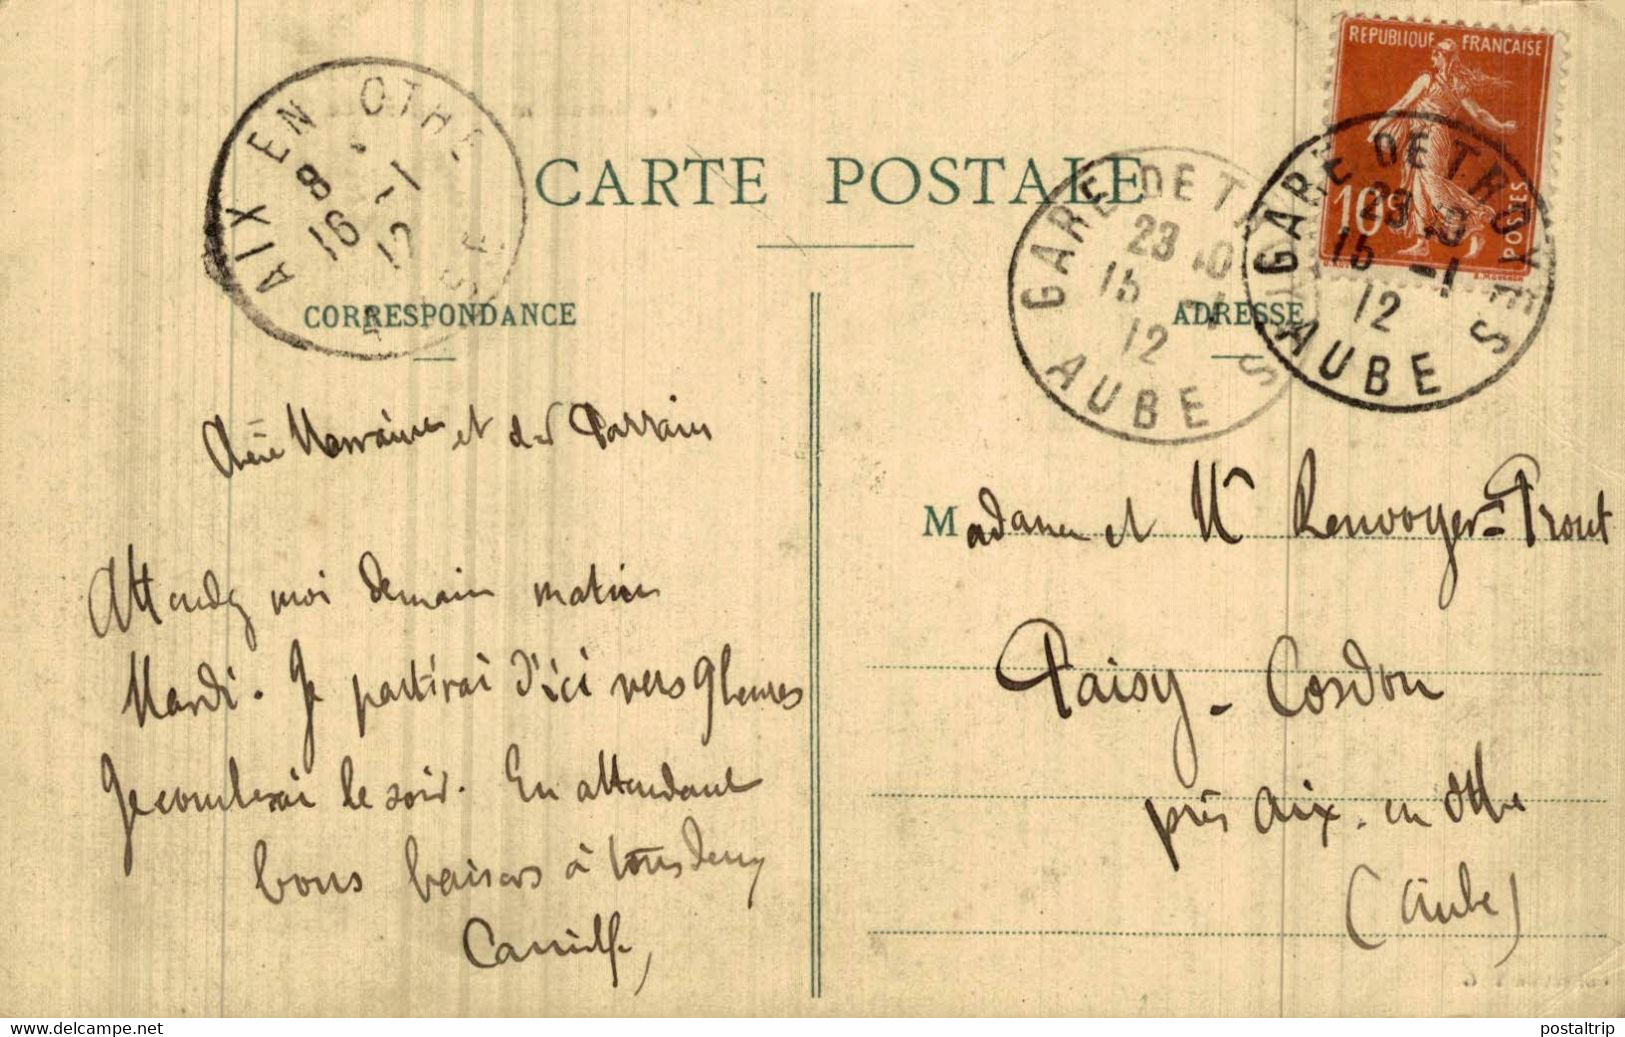 AIX EN OTHE
8
16 -1
12
CARTE POSTALE
REPUBLIQUE FRANÇAISE
10c
POSTES
GARE DE TROYES
23
15 -1
12
AUBE
GARE DE T S
23
15 -1
12
AUBE
CORRESPONDANCE
ADRESSE
Marraine et Parrain
Attendez moi demain matin
Mardi. Je partirai d'ici vers 9 heures
le soir. En attendant
bons baisers à tous deux
Camille,
Madame et Mr Renvoyer=Prout
Paisy-Cosdon
près Aix-en Othe
(Aube)
postaltrip
www.delcampe.net